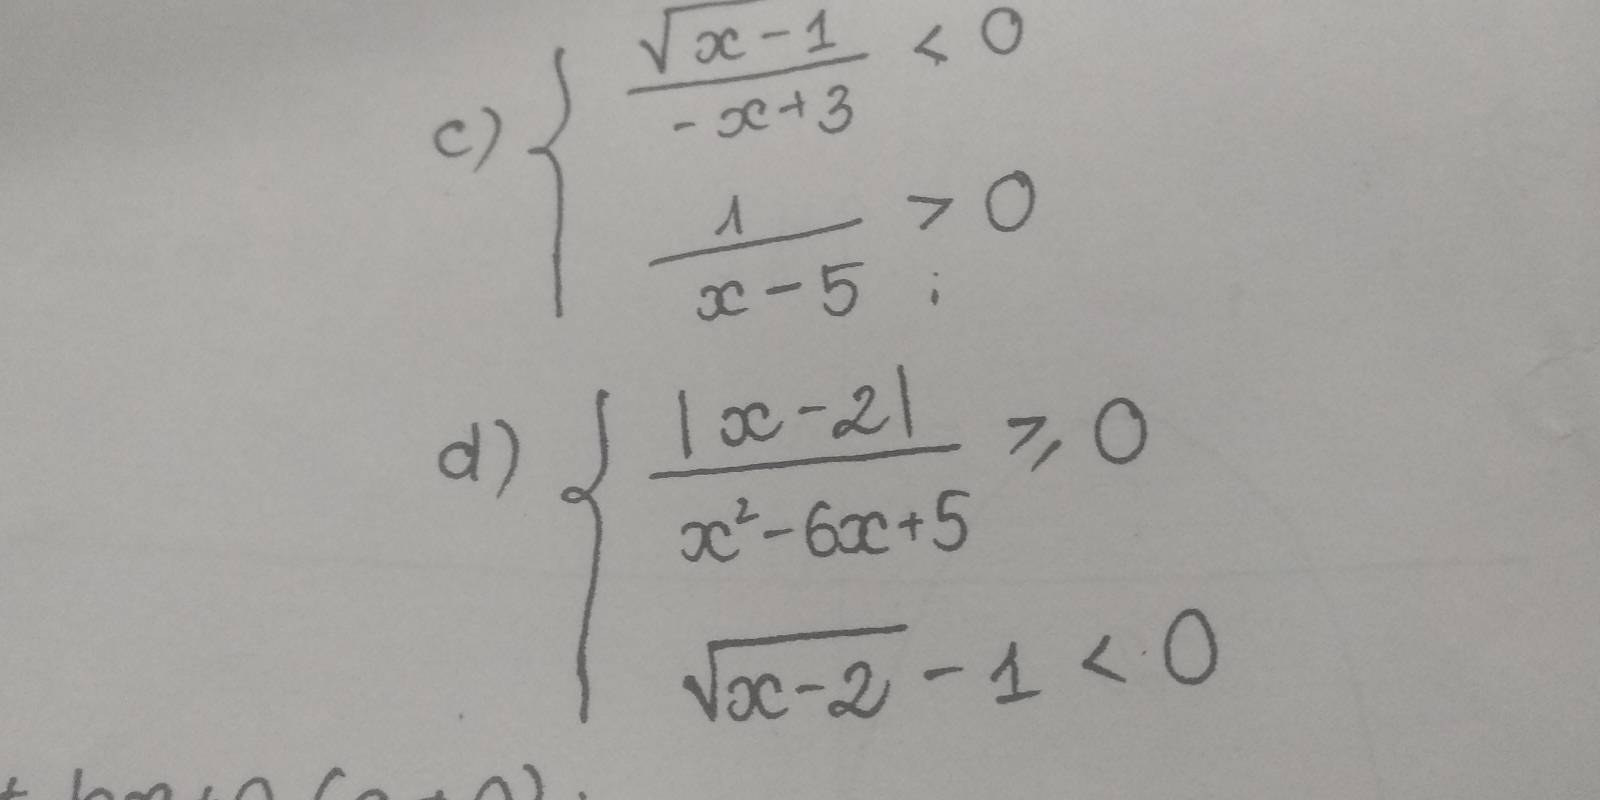 c) { √(x-1) / (-x+3) < 0
1 / (x-5) > 0 ;
d) { |x-2| / (x²-6x+5) ⩾ 0
√(x-2) - 1 < 0